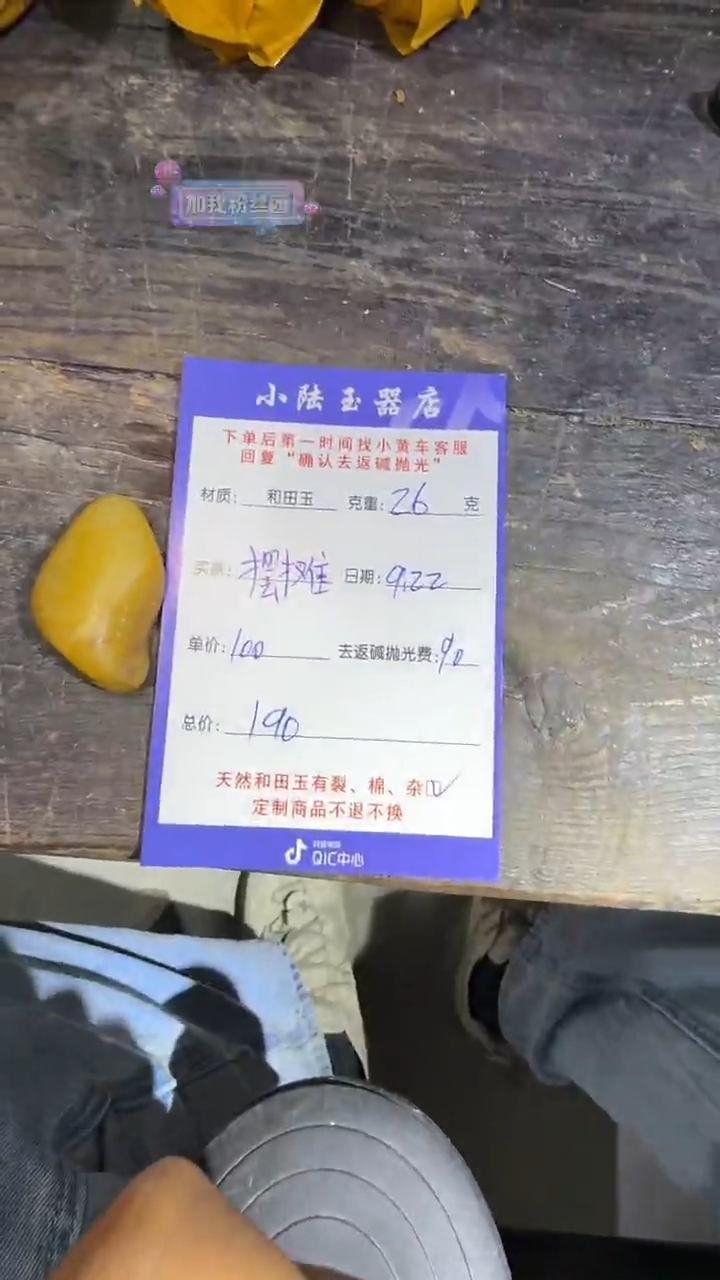 加我粉丝团
小陆玉器店
下单后第一时间找小黄车客服
回复“确认去返碱抛光”
材质: 和田玉 克重: 26 克
买家: 摆摊 日期: 9.22
单价: 100 去返碱抛光费: 90
总价: 190
天然和田玉有裂、棉、杂
定制商品不退不换
QIC中心